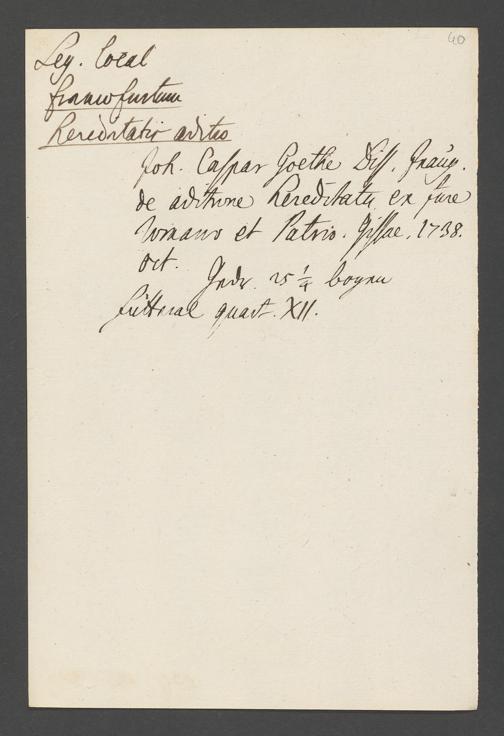 40
Leg. local
francofurtum
hereditatis aditio
Joh. Caspar Goethe Diss. Inaug.
de aditione hereditatis ex jure
romano et Patrio. Gissae. 1738.
Oct. 25 1/4 bogen
quart. XII.